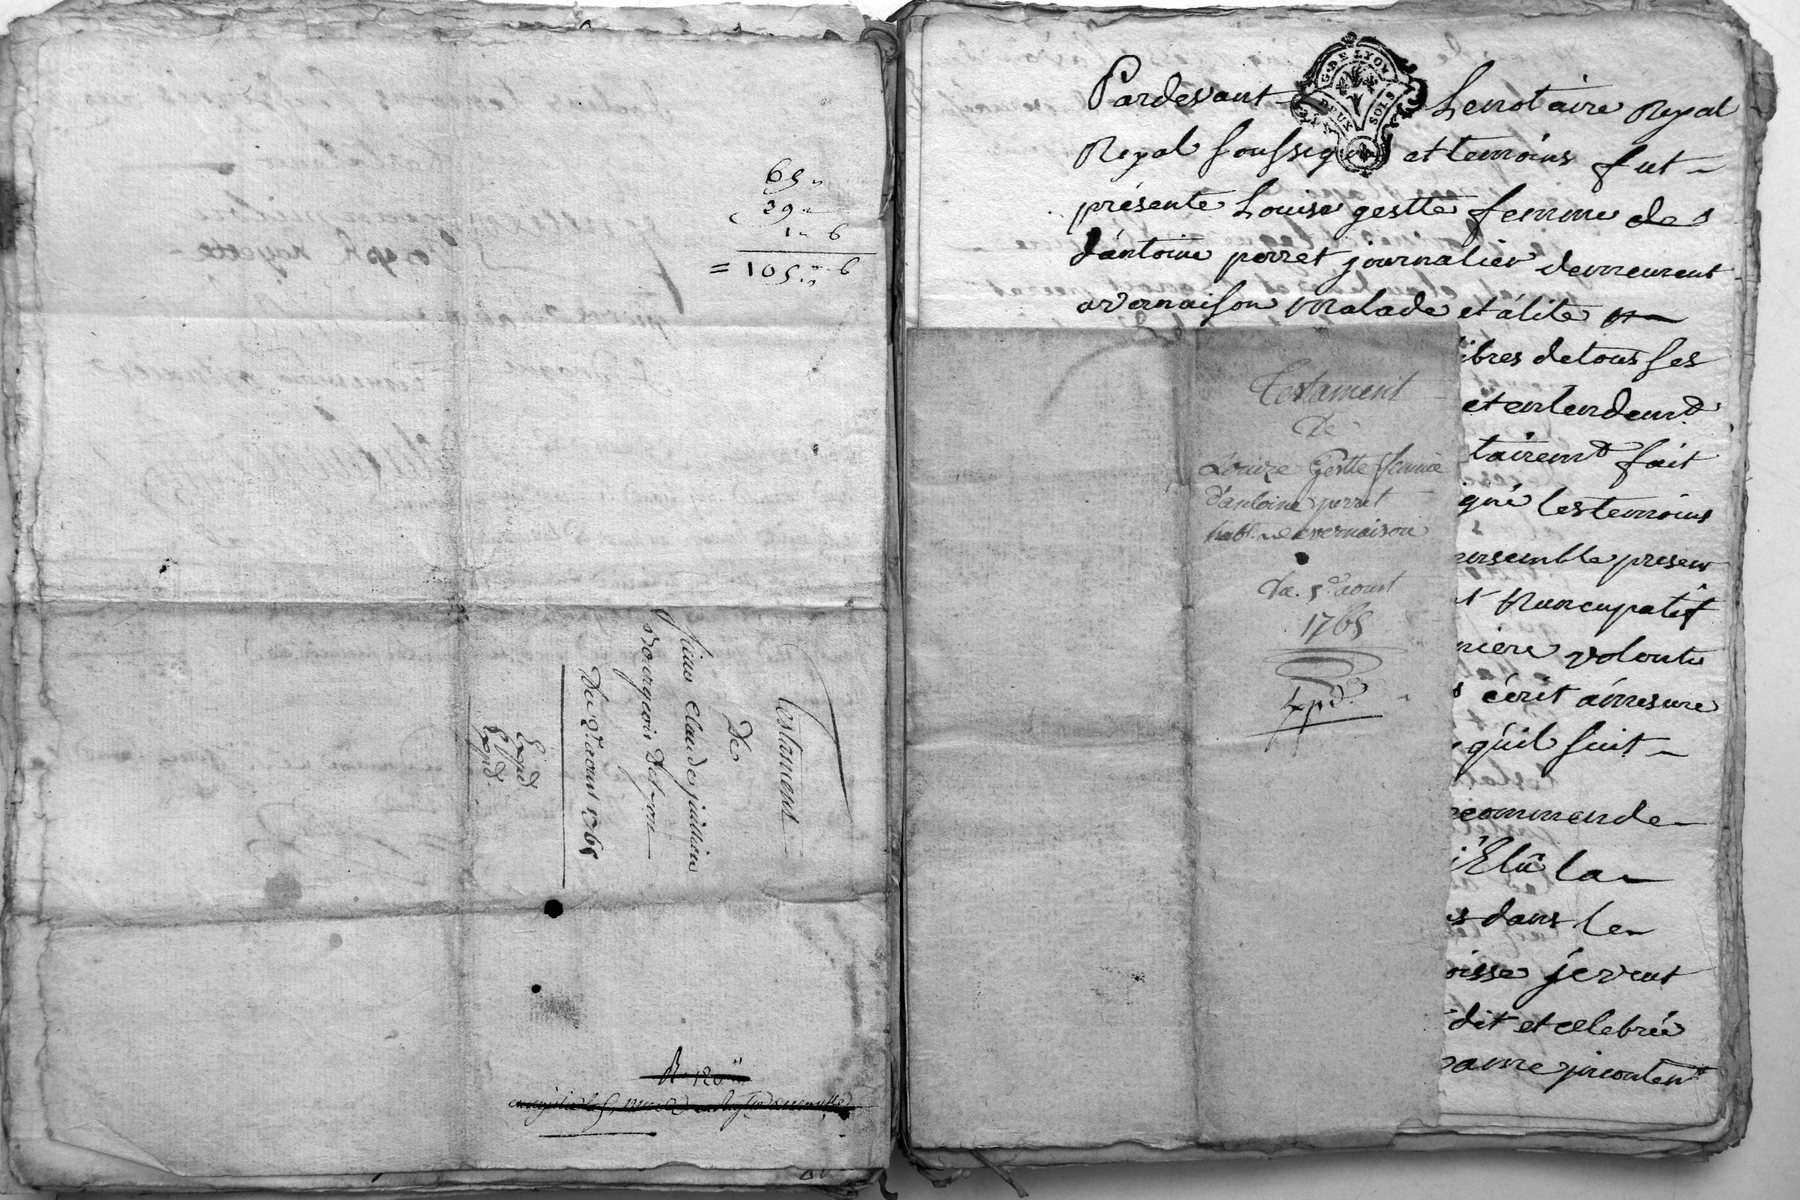 65 "
39 "
1 " 6
= 105 " 6
Testament
De
Sieur Claude jullien
Bourgeois De Lyon
Du 2e. aoust 1765
Expd
Expd.
G. DE LYON
DEUX SOLS
Pardevant Le notaire Royal
Royal soussigné et temoins fut
présente Louise gestte femme de
d'antoine perret journalier demeurent
a vernaison malade et àlité
ibres de tous ses
et entendemt.
tairemt. fait
qué les temoins
ensemble presen
t Nuncupatif
niere volonté
s écrit àmesure
qu'il suit
ecommende
Elû la
s dans le
oisse je veut
dit et celebrée
ame jncontent
Testament
De
Louize Gestte femme
d'antoine perret
habt. a vernaison
Du 5e. aoust
1765
Expd.